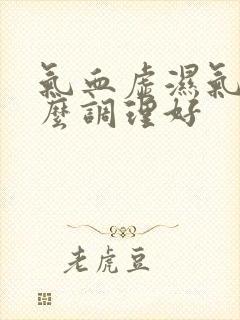 氣血虛濕氣
麼調理好
老虎豆